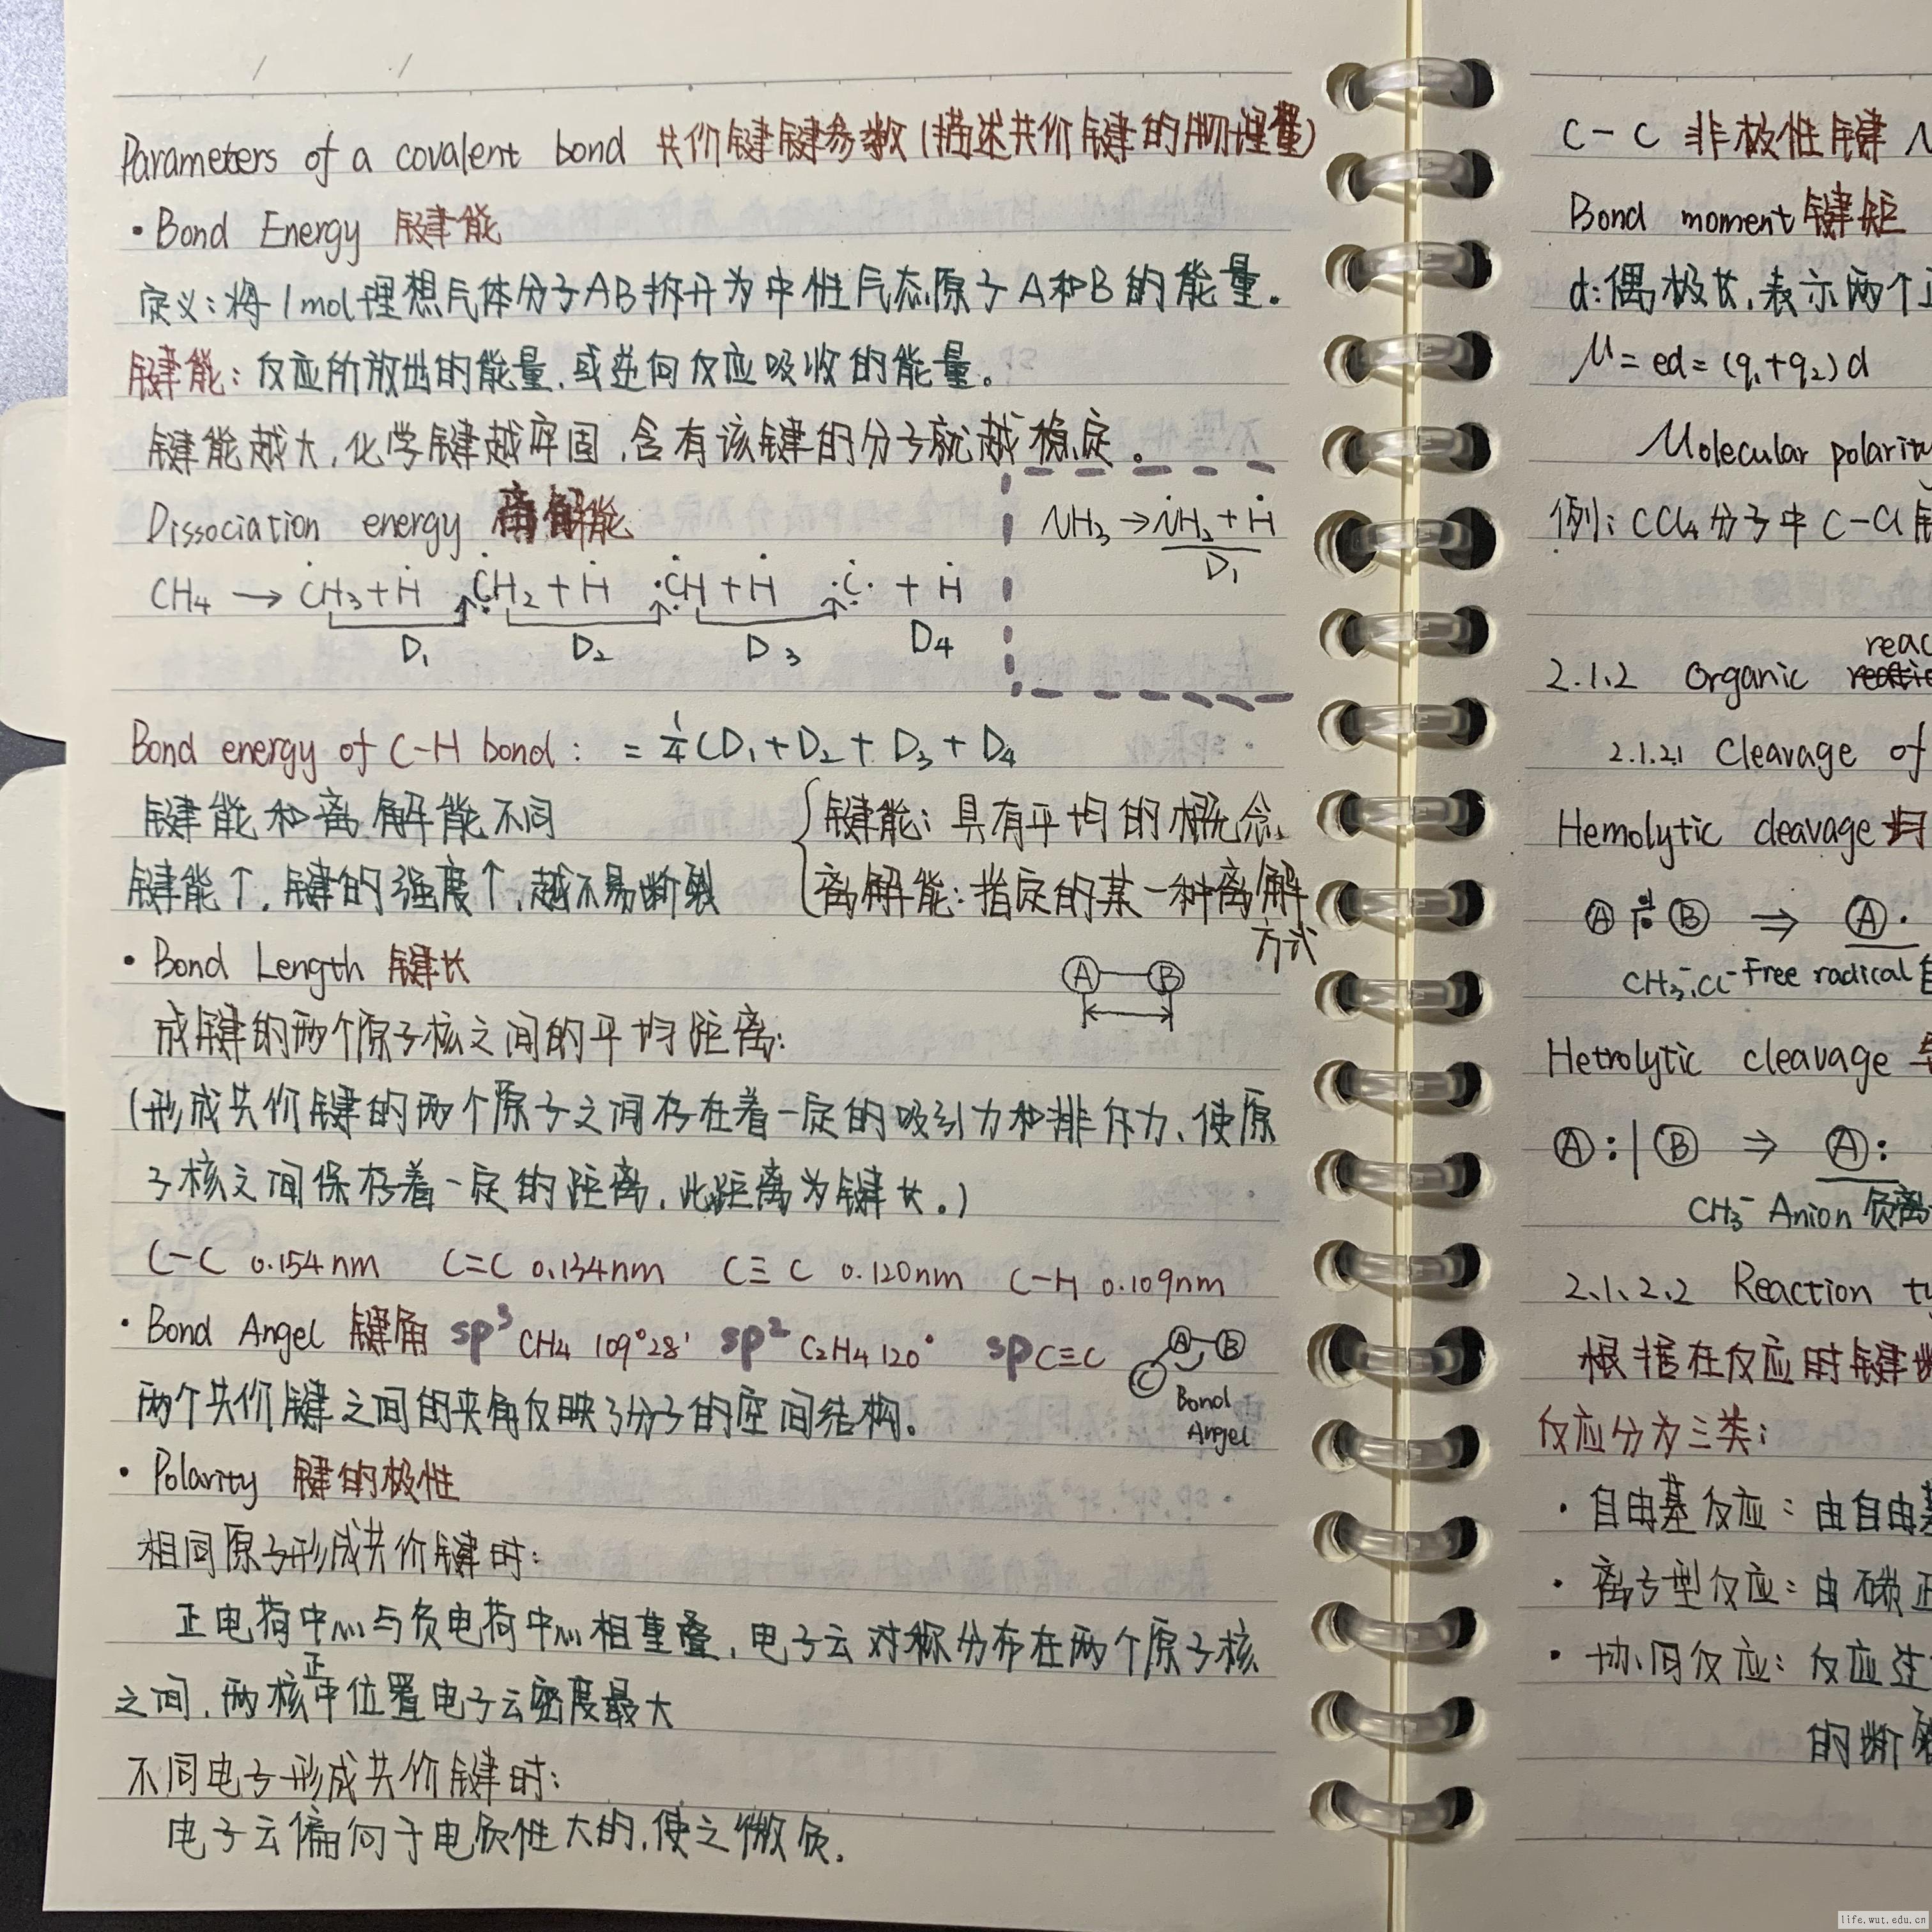 Parameters of a covalent bond 共价键键参数(描述共价键的物理量)
· Bond Energy 键能
定义:将1mol理想气体分子AB拆开为中性气态原子A和B的能量。
键能:反应所放出的能量,或逆向反应吸收的能量。
键能越大,化学键越牢固,含有该键的分子就越稳定。
Dissociation energy 离解能
NH₃→ṄH₂+Ḣ
D₁
CH₄ → ĊH₃+Ḣ ĊH₂+Ḣ ·ĊH+Ḣ ·Ċ· + Ḣ
D₁ D₂ D₃ D₄
Bond energy of C-H bond: = ¼(D₁+D₂+D₃+D₄
键能和离解能不同
键能↑,键的强度↑,越不易断裂
键能:具有平均的概念
离解能:指定的某一种离解
方式
· Bond Length 键长
A B
成键的两个原子核之间的平均距离:
(形成共价键的两个原子之间存在着一定的吸引力和排斥力、使原
子核之间保存着一定的距离,此距离为键长。)
C-C 0.154nm C=C 0.134nm C≡C 0.120nm C-H 0.109nm
· Bond Angel 键角 sp³ CH₄ 109°28' sp² C₂H₄ 120° sp C≡C
A B
C
Bond
Angel
两个共价键之间的夹角反映了分子的空间结构。
· Polarity 键的极性
相同原子形成共价键时:
正电荷中心与负电荷中心相重叠,电子云对称分布在两个原子核
之间,两核正中位置电子云密度最大
不同电子形成共价键时:
电子云偏向于电负性大的,使之微负.
C-C 非极性键
Bond moment 键矩
d:偶极长,表示两个
μ=ed=(q₁+q₂)d
Molecular polarity
例:CCl₄分子中C-Cl
2.1.2 Organic
2.1.2.1 Cleavage of
Hemolytic cleavage
A B ⇒ A·
CH₃-Cl Free radical
Hetrolytic cleavage
A:|B ⇒ A:
CH₃⁻ Anion 负离
2.1.2.2 Reaction
根据在反应时键
反应分为三类:
· 自由基反应:由自由
· 离子型反应:由碳正
· 协同反应:反应
的断
life.wut.edu.cn